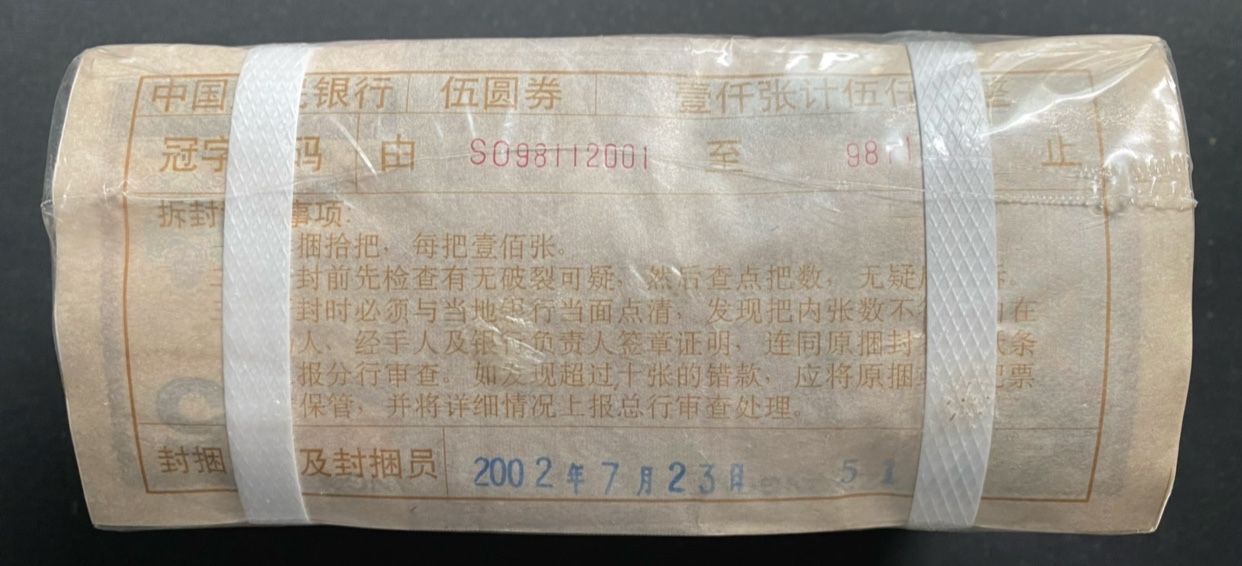 中国 银行 伍圆券 壹仟张计伍仟
冠字 码 由 SO98112001 至 981 止
拆封 事项:
捆拾把，每把壹佰张。
封前先检查有无破裂可疑，然后查点把数，无疑
封时必须与当地 行当面点清，发现把内张数不 在
人、经手人及银行负责人签章证明，连同原捆封 条
报分行审查。如发现超过十张的错款，应将原捆 把票
保管，并将详细情况上报总行审查处理。
封捆 及封捆员 2002年7月23日 51